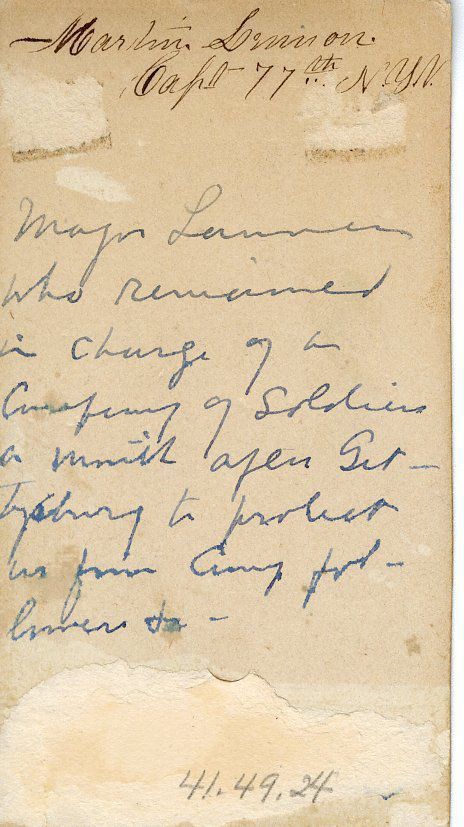 Martin Lennon.
Capt 77th N.Y.V.
Major Lennon
who remained
in charge of a
Company of Soldiers
a month after Get-
tysburg to protect
us from Camp fol-
lowers &c -
41.49.24